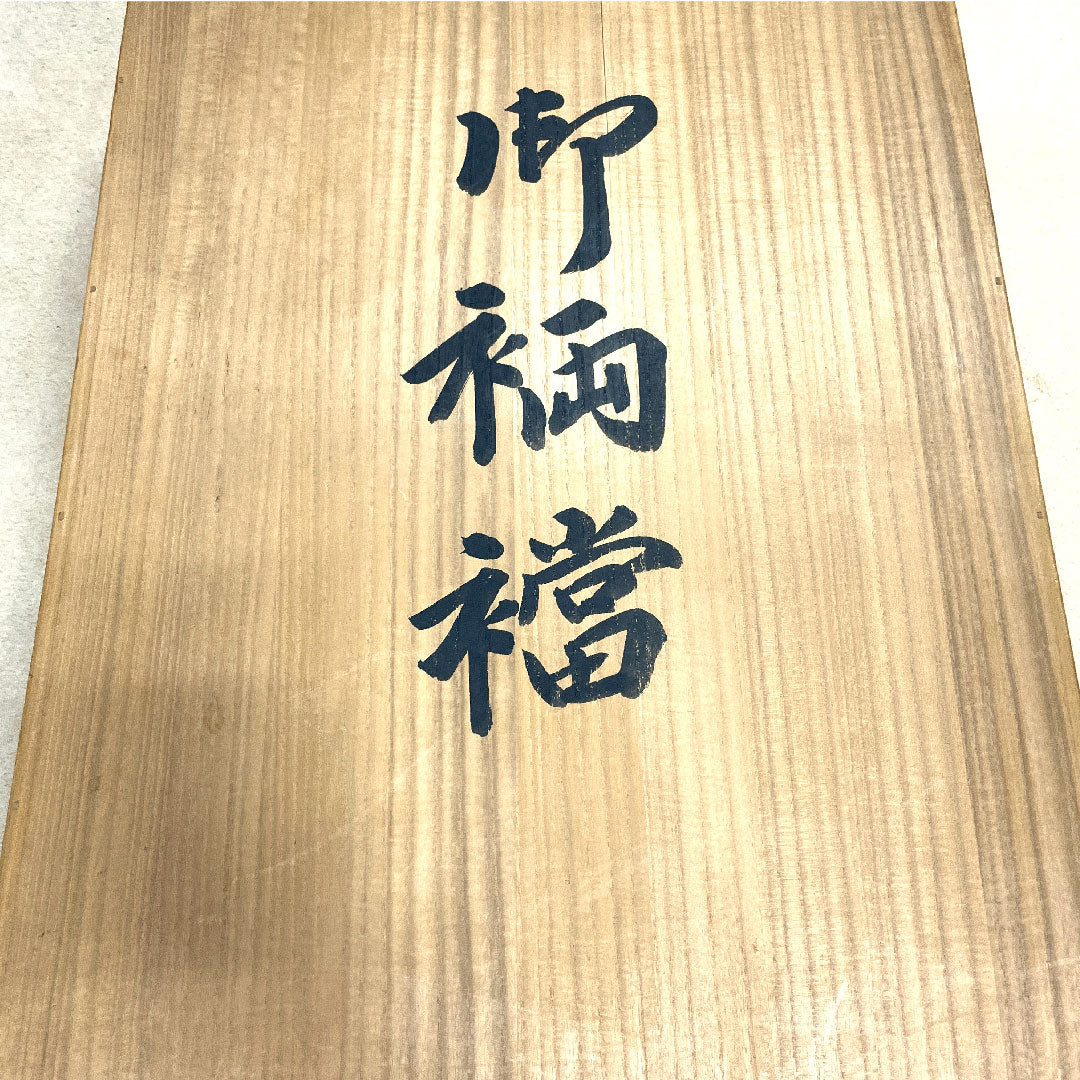 御裲襠